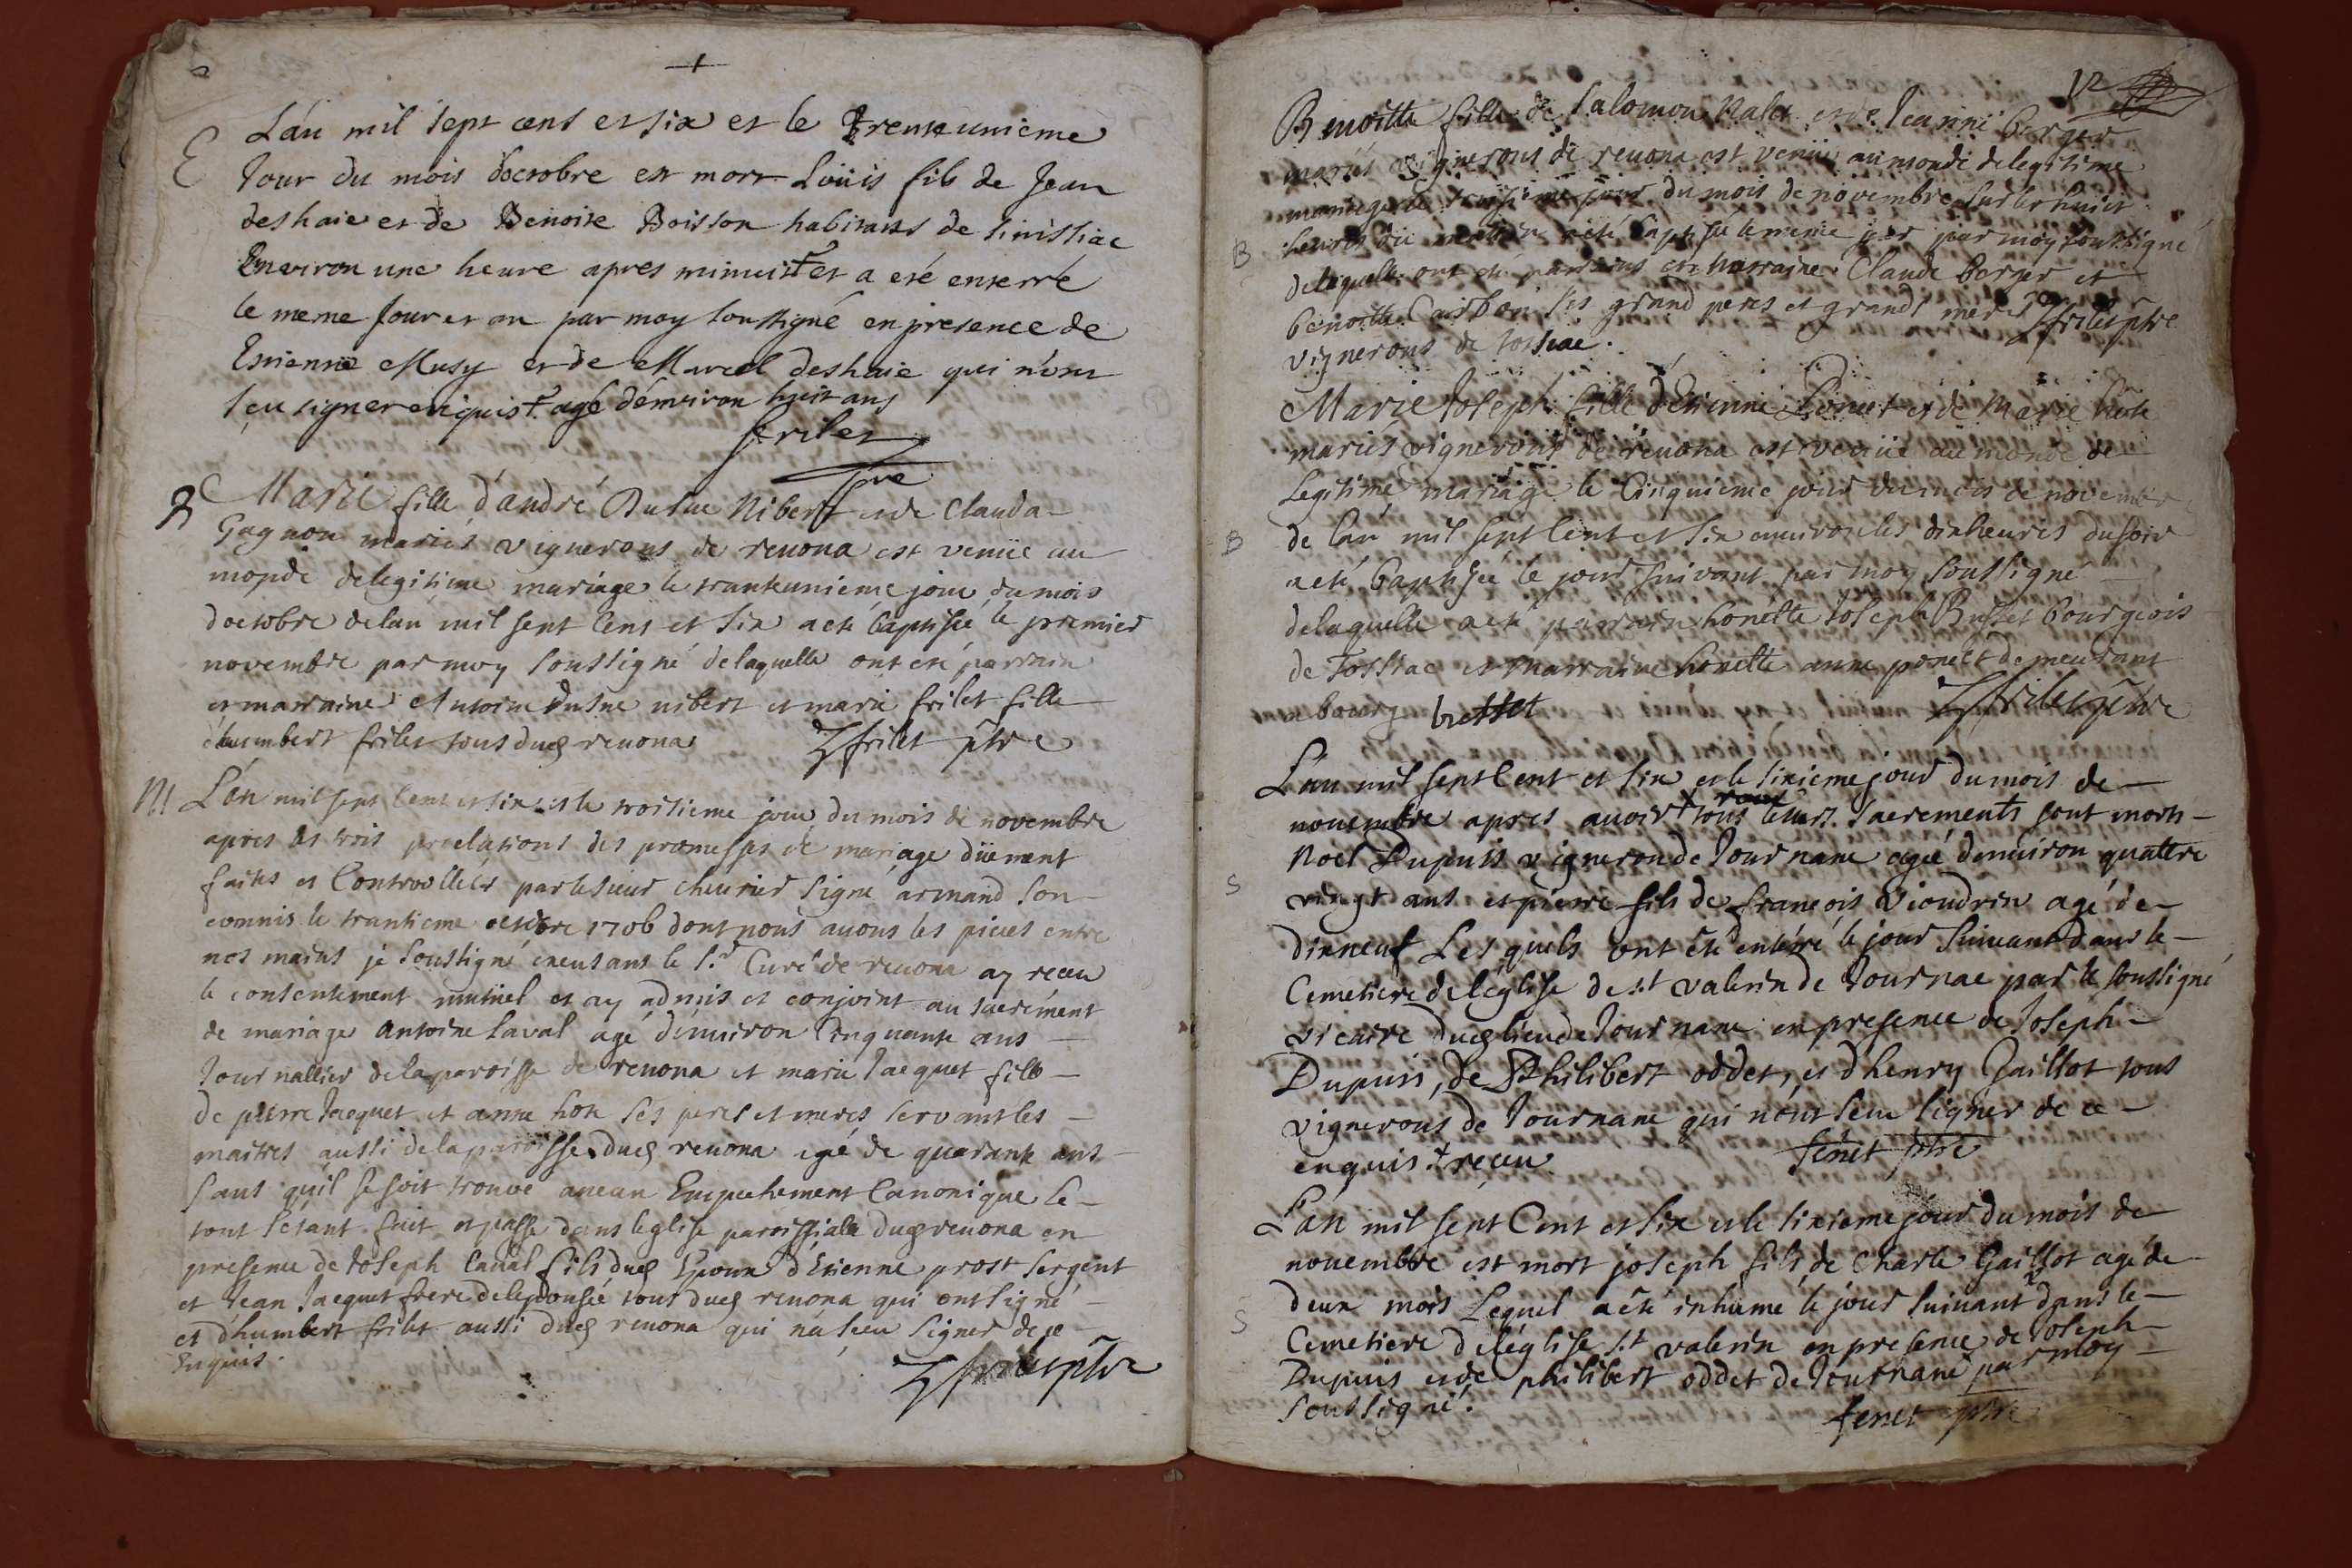 E
L'an mil sept cens et six et le trenteunieme
Jour du mois d'octobre est mort Loüis fils de Jean
deshaie et de Benoite Boisson habitans de
Environ une heure apres minuist et a eté enterré
le meme Jour et an par moy soussigné en presence de
Estienne Musy et de Marcel deshaie qui n'ont
sçu signer enquist. agé d'environ huit ans
frilet
ptre
B
Marie fille d'andré Dusue Nibert et de Clauda
Gagnon mariés vignerons de reuona est venüe au
monde delegitime mariage le tranteunieme jour du mois
doctobre delan mil sept Cent et six a eté baptisée le premier
novembre par moy soussigné delaquelle ont eté parrain
et marraine Antoine Dusue nibert et marie frilet fille
d'humbert frilet tous dud reuona frilet ptre
M
L'an mil sept Cent et six et le troisieme jour du mois de novembre
apres les trois proclations des promesses de mariage düement
faites et Controllées par le sieur cheurier signé armand son
commis le trantieme octobre 1706 dont nous auons les pieces entre
nos mains je soussigné en l'absence le sr Curé de reuona ay receu
le consentement mutuel et ay admis et conjoint au sacrement
de mariage antoine Laval agé d'enuiron Cinquante ans
Journallier delaparoisse de reuona et marie Jacquet fille
de pierre Jacquet et anne hote ses peres et meres servant les
maitres aussi delaparoisse dud reuona agé de quarante ans
sans quil se soit trouvé aucun Empechement Canonique le
tout s'etant fait et passé dans leglise paroissiale dud reuona en
presence de Joseph Laval fils dud Epoux d'Etienne prost sergent
et Jean Jacquet frere delepousée tous dud reuona qui ont signé
et d'humbert frilet aussi dud reuona qui na sceu signer de ce
Enquis.
frilet ptre
12
B
Benoitte fille de Salomon et de Jeanne berger
mariés vignerons de reuona est venüe au monde delegitime
mariage le troisieme jour du mois de novembre sur les huict
heures du matin a eté baptisée le meme jour par moy soussigné
delaquelle ont eté parrains et marraine Claude berger et
benoitte Carbon ses grand peres et grands meres
vignerons de tossiac. frilet ptre
B
Marie Joseph fille d'Etienne Ponset et de Marie hote
mariés vignerons de reuona est venüe au monde de
Legitime mariage le Cinquieme jour du mois de novembre
de lan mil sept Cent et six enuiron les dix heures du soir
a eté baptisée le jour suivant par moy soussigné
delaquelle a eté parrain honette Joseph Busset bourgeois
de Tossiac et marraine honette anne ponset demeurant
a bourg busset frilet ptre
S
L'an mil sept Cent et six et le sixieme jour du mois de
nouembre apres auoir + tous leurs sacrements sont morts
Noel Dupuis vigneron de Journane agé d'enuiron quattre
vingt ans et pierre fils de françois Vioudrin agé de
dixneuf Lesquels ont eté enterré le jour suiuant dans le
Cemetiere deleglise de st valerin de Journac par le soussigné
vicaire dud lieu de Journane en presence de Joseph
Dupuis, de Philibert oddet, et d'henry Gaillot tous
vignerons de Journane qui n'ont sceu signer de ce
enquis. + receu fenet ptre
S
L'an mil sept Cent et six et le sixieme jour du mois de
nouembre est mort joseph fils de Charle Gaillot agé de
deux mois Lequel a eté inhumé le jour suiuant dans le
Cemetiere deleglise st valerin en presence de Joseph
Dupuis et de philibert oddet de Journane par moy
soussigné. fenet ptre